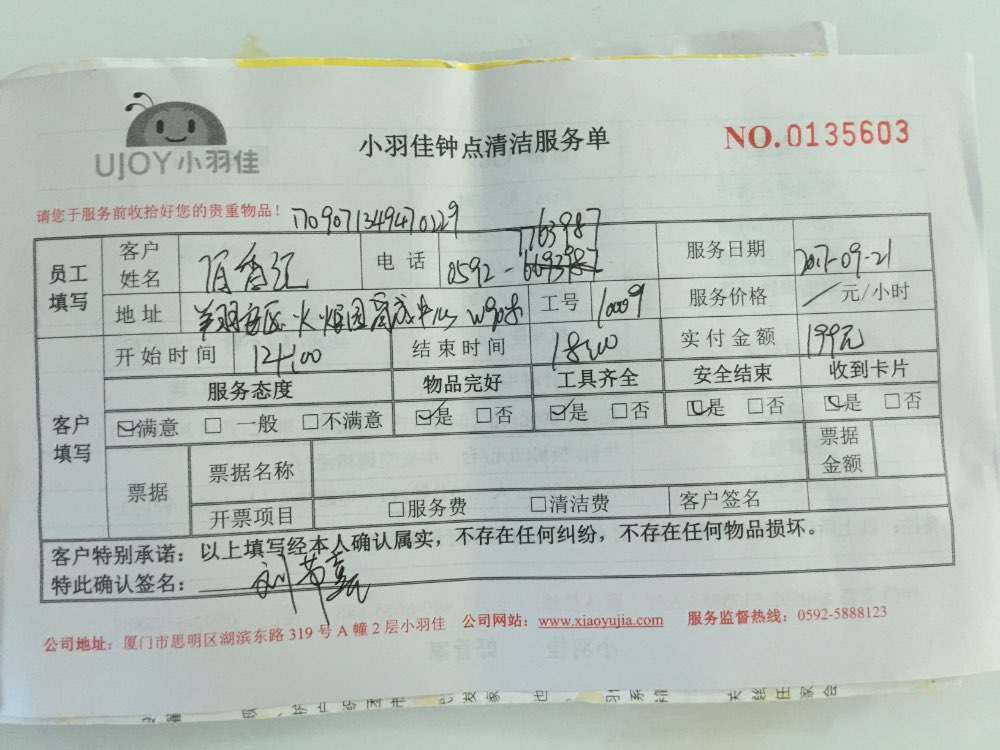 UJOY小羽佳
小羽佳钟点清洁服务单
NO.0135603
请您于服务前收拾好您的贵重物品！
17090713494710229
员工填写
客户姓名
电话 0592-6693987 7763987
服务日期 2017-09-21
地址 火炬园 W90
工号 10009
服务价格 / 元/小时
开始时间 14:00
结束时间 18:00
实付金额 199元
客户填写
服务态度 物品完好 工具齐全 安全结束 收到卡片
☑满意 □ 一般 □不满意 ☑是 □否 ☑是 □否 ☑是 □否 ☑是 □否
票据 票据名称 票据金额
开票项目 □服务费 □清洁费 客户签名
客户特别承诺：以上填写经本人确认属实，不存在任何纠纷，不存在任何物品损坏。
特此确认签名：
公司地址：厦门市思明区湖滨东路 319 号 A 幢 2 层小羽佳 公司网站：www.xiaoyujia.com 服务监督热线：0592-5888123